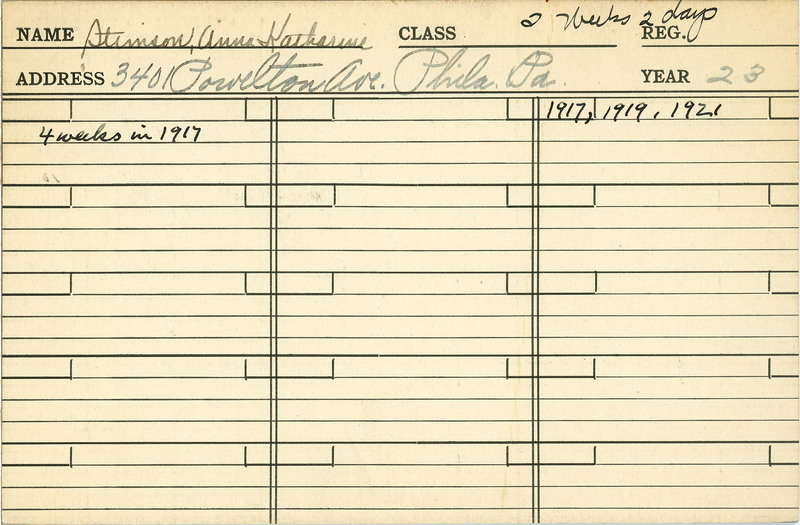 NAME Stimson, Anna Katharine CLASS 2 Weeks 2 days REG.
ADDRESS 3401 Powelton Ave. Phila. Pa. YEAR 23
1917, 1919, 1921
4 weeks in 1917